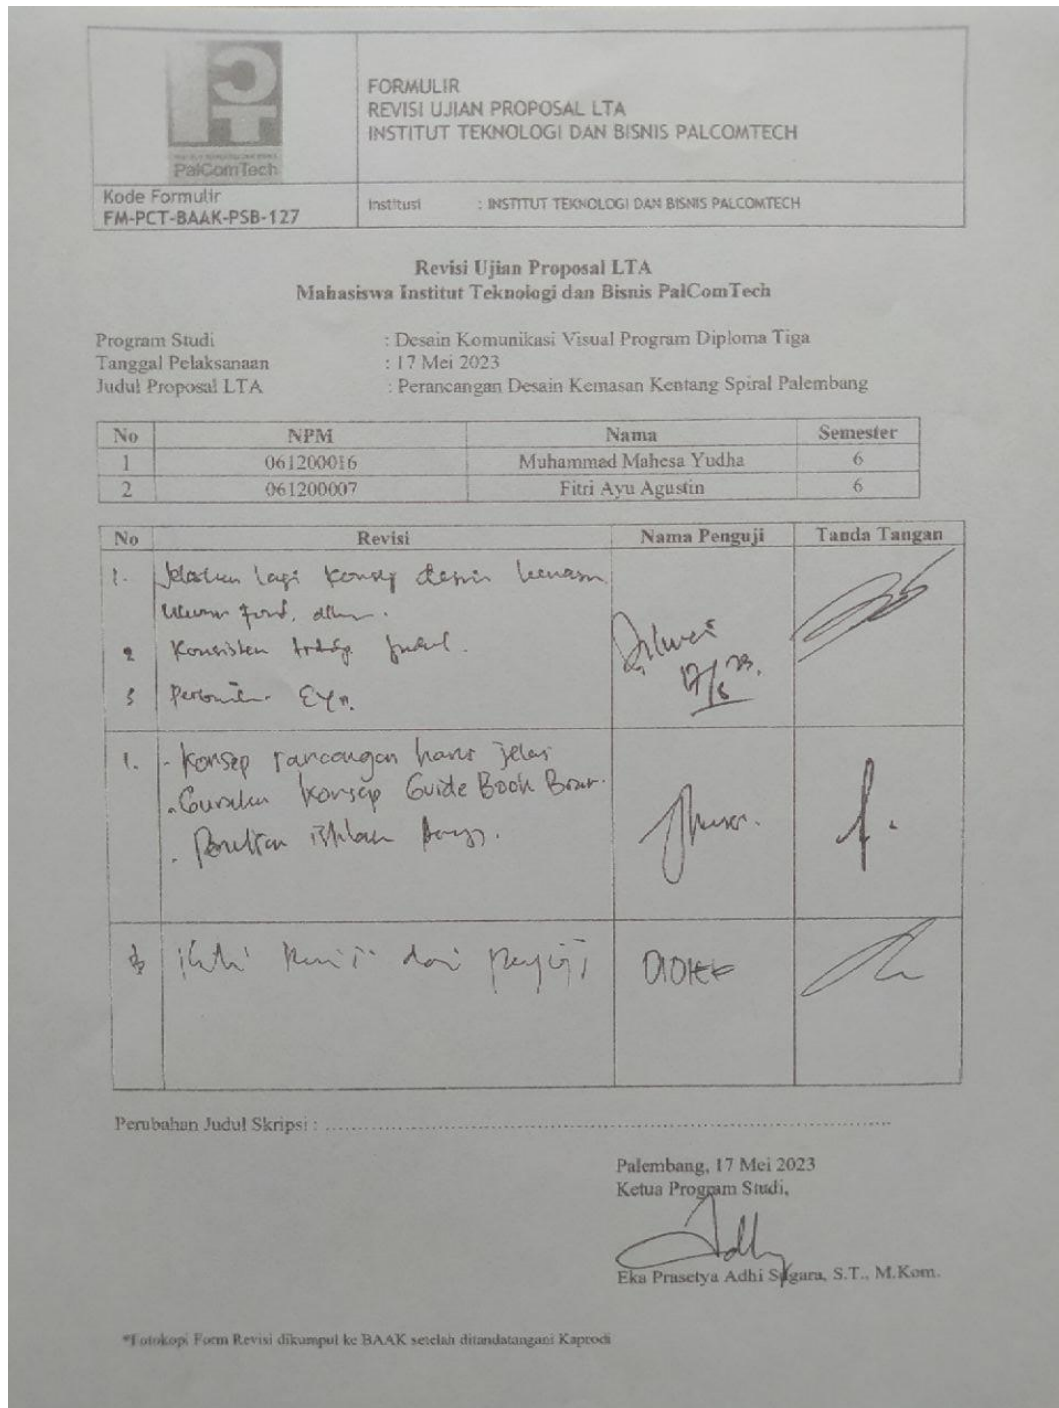 FORMULIR
REVISI UJIAN PROPOSAL LTA
INSTITUT TEKNOLOGI DAN BISNIS PALCOMTECH
PalComTech
Kode Formulir
FM-PCT-BAAK-PSB-127
Institusi : INSTITUT TEKNOLOGI DAN BISNIS PALCOMTECH
Revisi Ujian Proposal LTA
Mahasiswa Institut Teknologi dan Bisnis PalComTech
Program Studi : Desain Komunikasi Visual Program Diploma Tiga
Tanggal Pelaksanaan : 17 Mei 2023
Judul Proposal LTA : Perancangan Desain Kemasan Kentang Spiral Palembang
No NPM Nama Semester
1 061200016 Muhammad Mahesa Yudha 6
2 061200007 Fitri Ayu Agustin 6
No Revisi Nama Penguji Tanda Tangan
1. Jelaskan lagi konsep desain
2 Konsisten judul.
3
1. - Konsep rancangan harus jelas
- Gunakan konsep Guide Book
- Penulisan istilah
dari penguji
Perubahan Judul Skripsi : ........
Palembang, 17 Mei 2023
Ketua Program Studi,
Eka Prasetya Adhi Sugara, S.T., M.Kom.
*Fotokopi Form Revisi dikumpul ke BAAK setelah ditandatangani Kaprodi